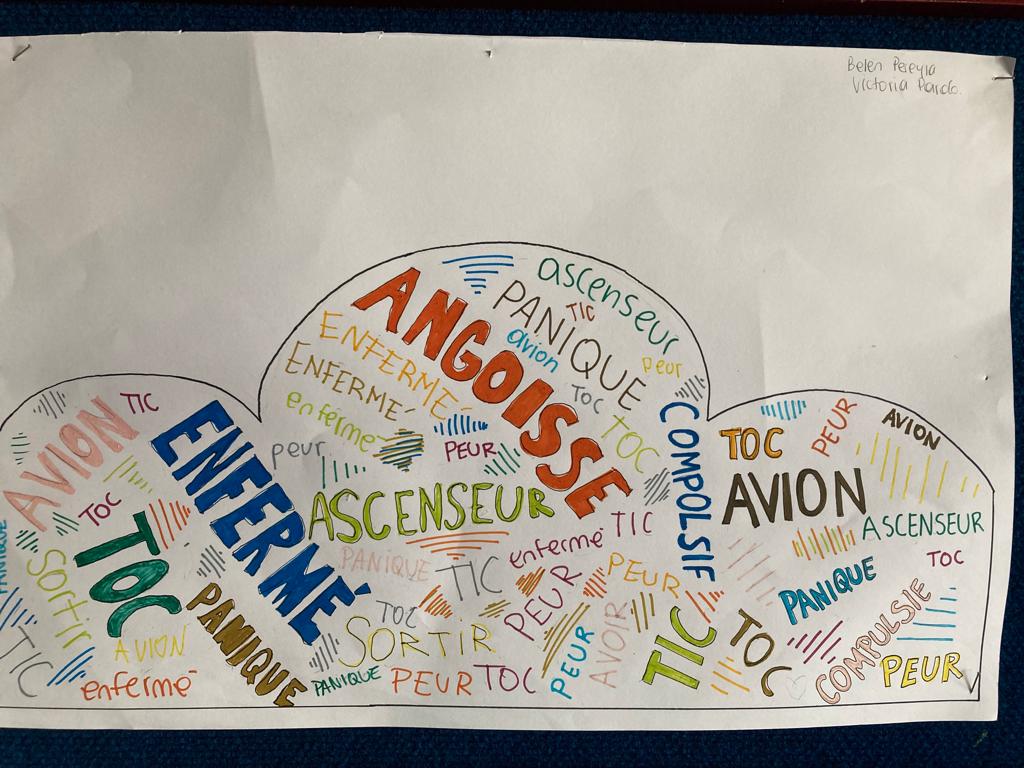 Belen Pereyra
Victoria Pardo.
ascenseur
PANIQUE
TIC
ANGOISSE
avion
peur
ENFERMÉ
ENFERMÉ
TOC
enfermé
TOC
peur
PEUR
COMPOLSIF
ASCENSEUR
TIC
enfermé
PANIQUE
TIC
PEUR
PEUR
TOC
SORTIR
PEUR
AVOIR
TIC
PANIQUE
PEUR
TOC
TIC
AVION
ENFERMÉ
TOC
TOC
PANIQUE
Sortir
PAMIQUE
AVION
TIC
enfermé
TOC
PEUR
AVION
AVION
ASCENSEUR
TOC
PANIQUE
TOC
COMPULSIE
PEUR